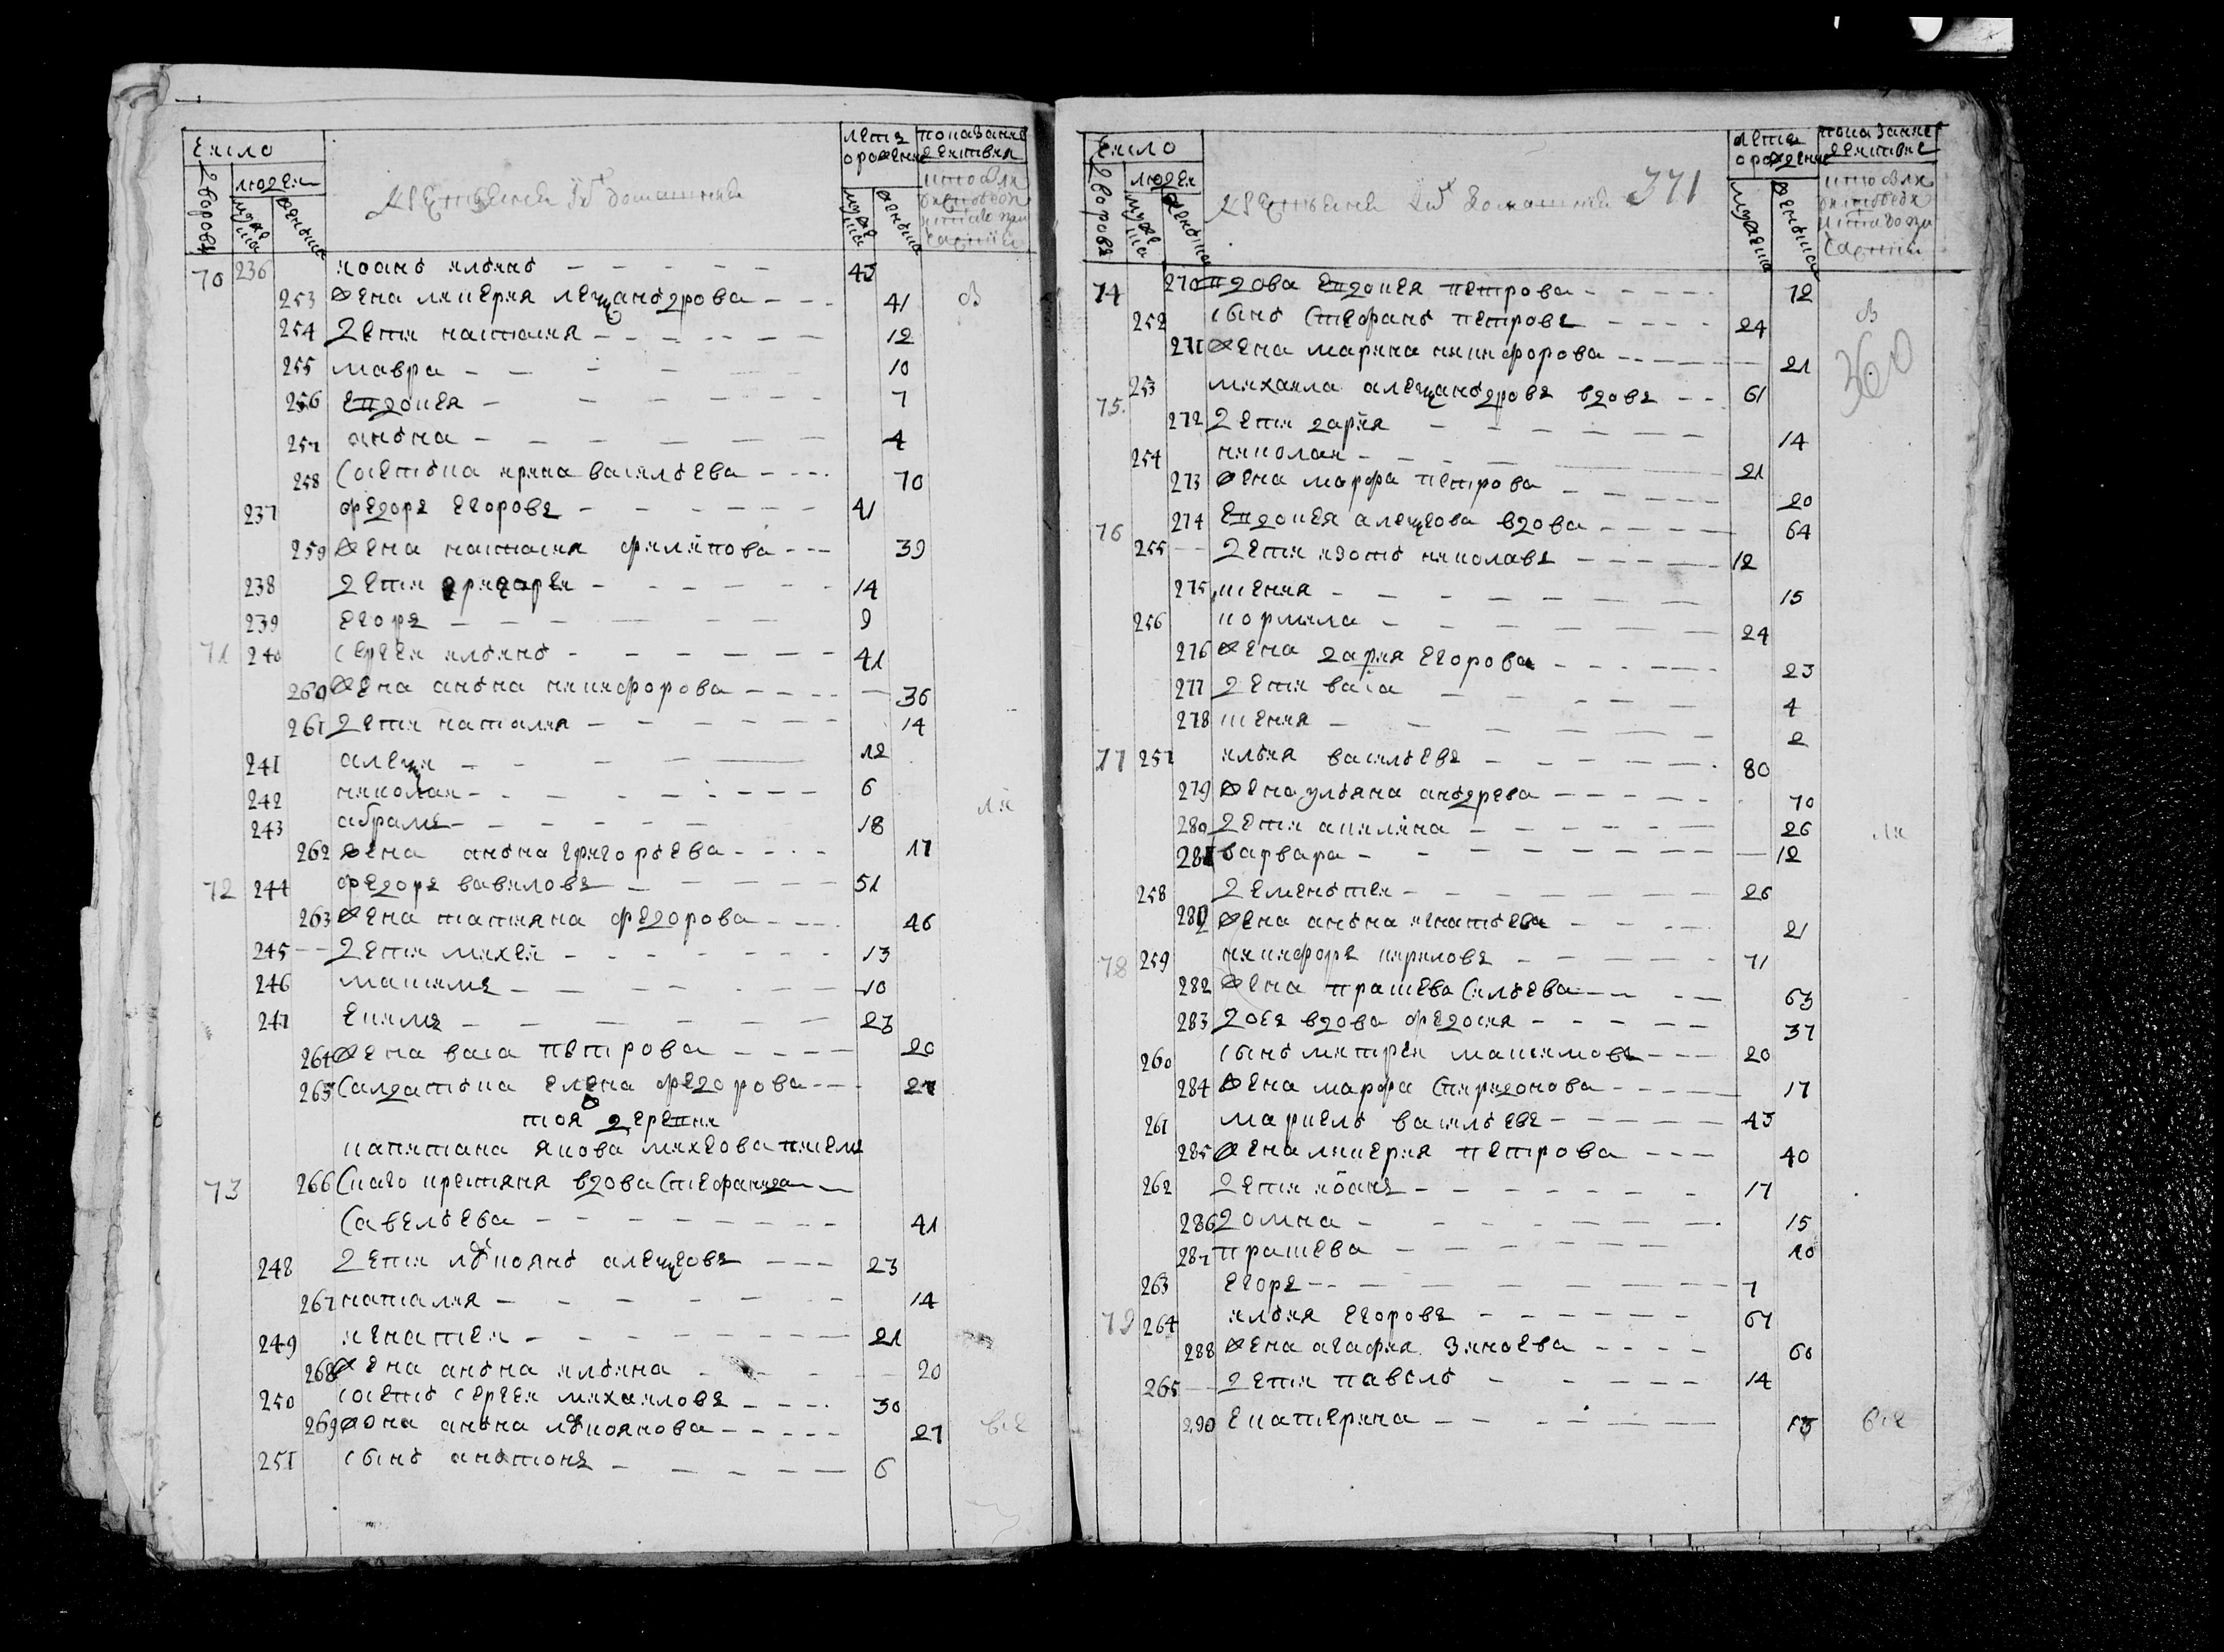 число
людеи
дворовъ
мужеска
женска
лета
от рождения
мужеска
женска
показание
действия
крестьяне и их домашния
70 236 иоанъ ильинъ 43
253 жена ликерия лександрова 41
254 дети наталия 12
255 мавра 10
256 евдокея 7
257 анъна 4
258 солътъка ирина васильева 70
237 федоръ егоровъ 41
259 жена наталия филипова 39
238 дети григореи 14
239 егоръ 9
71 240 сергеи ильинъ 41
260 жена анъна никифорова 36
261 дети наталия 14
241 алексеи 12
242 николаи 6
243 абрамъ 18
262 жена анъна григорьева 17
72 244 федоръ вавиловъ 51
263 жена татияна федорова 46
245 дети михеи 13
246 максимъ 10
247 екимъ 23
264 жена васа петрова 20
265 салдатъка елена федорова 27
тоя ж деревни
капитана якова михеова
73 266 скаго крестяня вдова стефанида
савельева 41
248 дети лукоянъ алексеовъ 23
267 наталия 14
249 игнатеи 21
268 жена анъна ильина 20
250 сергеи михаиловъ 30
269 жена анъна лукоянова 27
251 сынъ анътонъ 6
все
число
людеи
дворовъ
мужеска
женска
крестьяне и их домашния 371
лета
от рождения
мужеска
женска
показание
действие
74 270 вдова евдокея петрова 72
360
252 сынъ стефанъ петровъ 24
271 жена марина никифорова 21
75 253 михаила александровъ вдовъ 61
272 дети дария 14
254 николаи 21
273 жена марфа петрова 20
76 274 евдокея алексеова вдова 64
255 дети изотъ николавъ 12
275 ксения 15
256 кормила 24
276 жена дария егорова 23
277 дети васа 4
278 ксения 2
77 257 илья васильевъ 80
279 жена ульяна андрева 70
280 дети акилина 26
281 варвара 12
258 дементеи 26
282 жена анъна игнатьева 21
78 259 никифоръ кириловъ 71
282 жена прасева сильева 63
283 дочь вдова федосия 37
260 сынъ митреи максимовъ 20
284 жена марфа спиридонова 17
261 маркелъ васильевъ 43
285 жена ликерия петрова 40
262 дети иоанъ 17
286 домна 15
287 прасева 10
263 егоръ 7
79 264 илья егоровъ 67
288 жена агафия зиноева 60
265 дети павелъ 14
290 екатерина 13
все